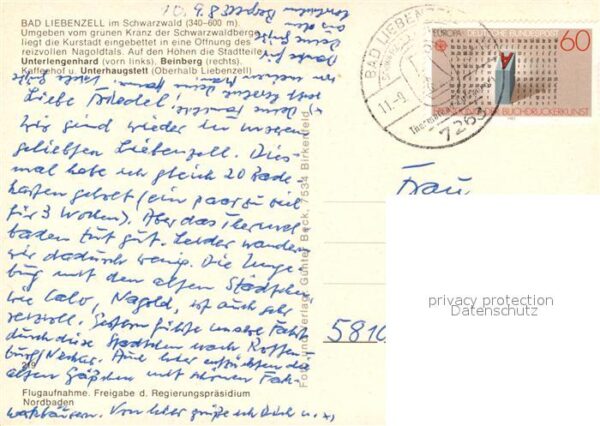 10.9.83
BAD LIEBENZELL im Schwarzwald (340-600 m).
Umgeben vom grünen Kranz der Schwarzwaldberge
liegt die Kurstadt eingebettet in eine Öffnung des
reizvollen Nagoldtals. Auf den Höhen die Stadtteile
Unterlengenhard (vorn links), Beinberg (rechts).
Kaffeehof u. Unterhaugstett (Oberhalb Liebenzell)
Liebe Friedel!
wir sind wieder in unserem
geliebten Liebenzell. Dies-
mal habe ich gleich 20 Bade-
karten geholt (ein paar zu viel
für 3 Wochen). Aber das Thermal-
baden tut gut. Leider wandern
wir dadurch wenig. Die Umge-
bung mit den alten Städtchen
wie Calw, Nagold, ist auch sehr
reizvoll. Gestern führte unsere Fahrt
durch diese Städtchen nach Rotten-
burg/Neckar. Auch hier entzückten die
alten Gäßchen mit schönen Fach-
219
Flugaufnahme. Freigabe d. Regierungspräsidium
Nordbaden
werkhäusern. Von hier grüße ich Dich u. x)
x) Deine Familie,
Foto und Verlag: Günter Beck, 7534 Birkenfeld
BAD LIEBENZELL
11.-9
7263
EUROPA DEUTSCHE BUNDESPOST 60
BUCHDRUCKERKUNST
Frau
5810
privacy protection
Datenschutz